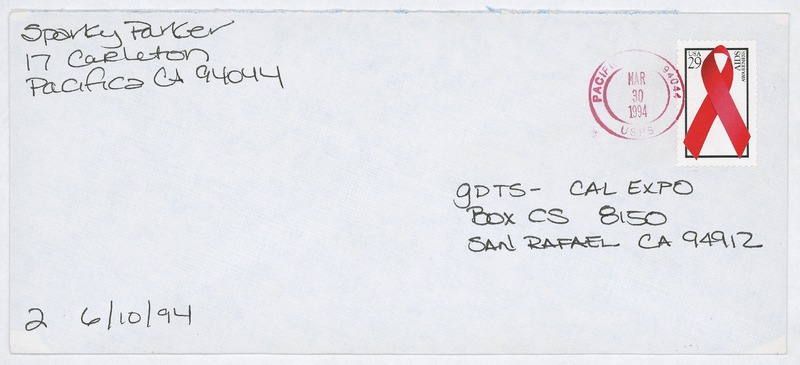 Sparky Parker
17 Carleton
Pacifica CA 94044
PACIFI 94044
MAR
30
1994
USPS
USA
29
AIDS
AWARENESS
GDTS - CAL EXPO
BOX CS 8150
SAN RAFAEL CA 94912
2 6/10/94